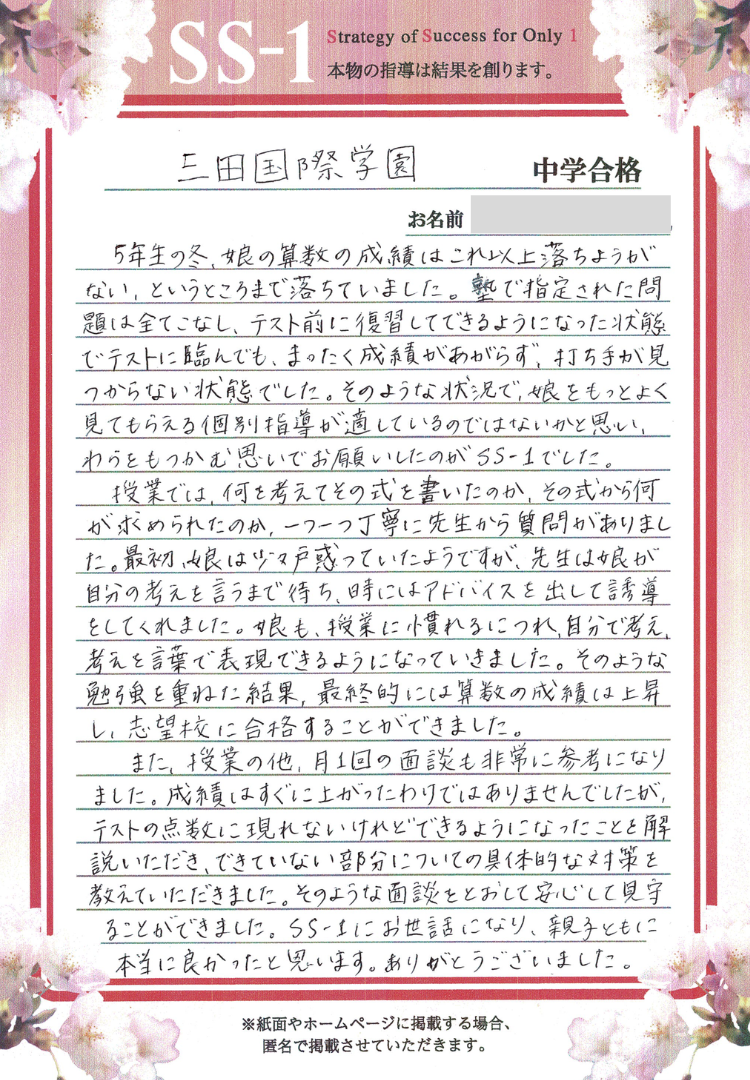 SS-1
Strategy of Success for Only 1
本物の指導は結果を創ります。
三田国際学園
中学合格
お名前
5年生の冬、娘の算数の成績はこれ以上落ちようが
ない、というところまで落ちていました。塾で指定された問
題は全てこなし、テスト前に復習してできるようになった状態
でテストに臨んでも、まったく成績があがらず、打ち手が見
つからない状態でした。そのような状況で、娘をもっとよく
見てもらえる個別指導が適しているのではないかと思い、
わらをもつかむ思いでお願いしたのがSS-1でした。
授業では、何を考えてその式を書いたのか、その式から何
が求められたのか、一つ一つ丁寧に先生から質問がありまし
た。最初、娘は少々戸惑っていたようですが、先生は娘が
自分の考えを言うまで待ち、時にはアドバイスを出して誘導
をしてくれました。娘も、授業に慣れるにつれ、自分で考え、
考えを言葉で表現できるようになっていきました。そのような
勉強を重ねた結果、最終的には算数の成績は上昇
し、志望校に合格することができました。
また、授業の他、月1回の面談も非常に参考になり
ました。成績はすぐに上がったわけではありませんでしたが、
テストの点数に現れないけれどできるようになったことを解
説いただき、できていない部分についての具体的な対策を
教えていただきました。そのような面談をとおして安心して見守
ることができました。SS-1にお世話になり、親子ともに
本当に良かったと思います。ありがとうございました。
※紙面やホームページに掲載する場合、
匿名で掲載させていただきます。